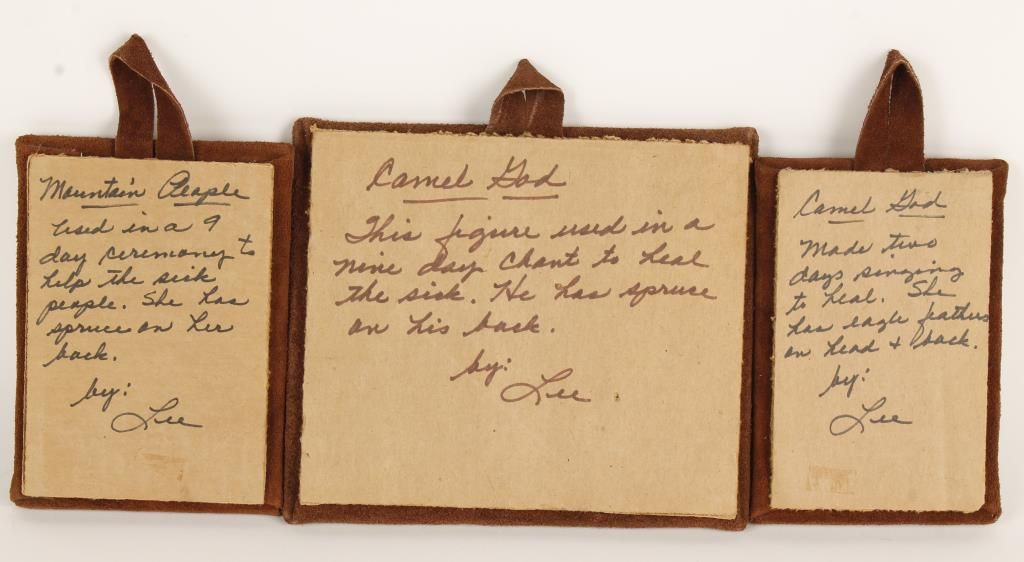 Mountain People
Used in a 9
day ceremony to
help the sick
people. She has
spruce on her
back.
by:
Lee
Camel God
This figure used in a
nine day chant to heal
the sick. He has spruse
on his back.
by:
Lee
Camel God
Made two
days singing
to heal. She
has eagle feathers
on head + back.
by:
Lee